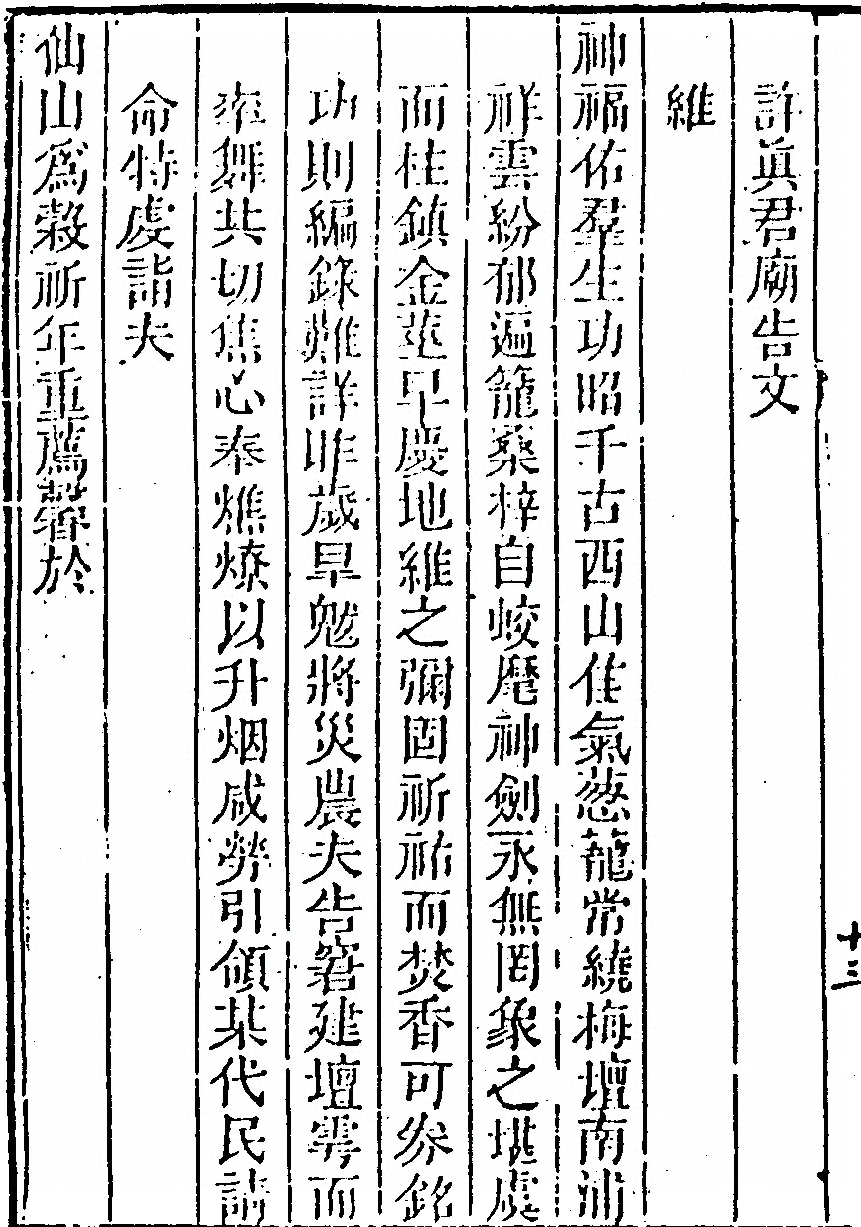 許眞君廟告文
維
神福佑羣生功昭千古西山佳氣葱蘢常繞梅壇南浦
祥雲紛郁遍籠桑梓自蛟麈神劍永無罔象之堪虞
而柱鎮金莖早慶地維之彌固祈祐而焚香可券銘
功則編錄難詳昨歲旱魃將災農夫告窘建壇雩而
率舞共切焦心奉燋燎以升烟咸勞引領某代民請
命特虔詣夫
仙山爲穀祈年重薦馨於
十三